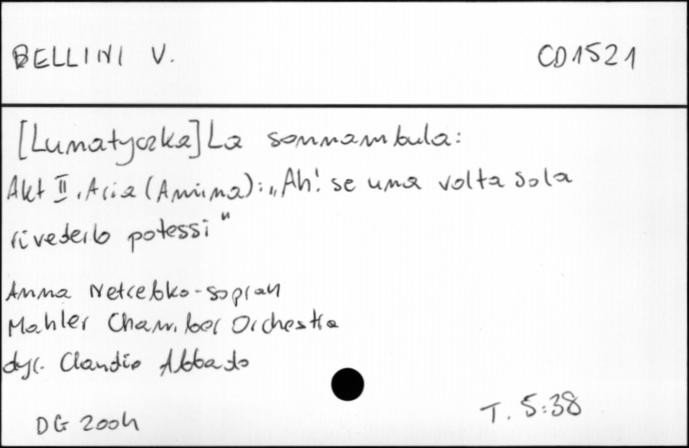 BELLINI V. CD1521
[Lunatyczka] La sonnambula:
Akt II, Aria (Amina): „Ah! se una volta sola
rivederlo potessi"
Anna Netrebko - sopran
Mahler Chamber Orchestra
dyr. Claudio Abbado
DG 2004 T. 5:38